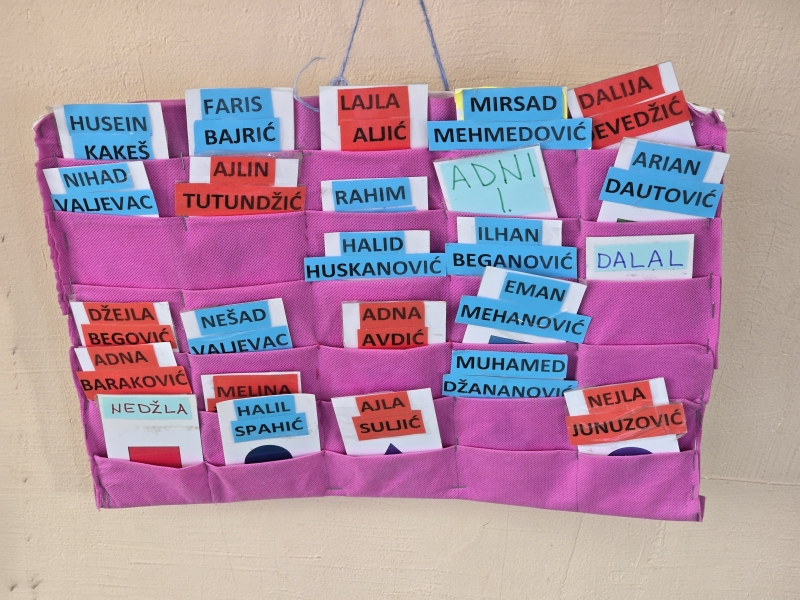 HUSEIN
KAKEŠ
FARIS
BAJRIĆ
LAJLA
ALJIĆ
MIRSAD
MEHMEDOVIĆ
DALIJA
NIHAD
VALJEVAC
AJLIN
TUTUNDŽIĆ
RAHIM
ADNI
1.
ARIAN
DAUTOVIĆ
HALID
HUSKANOVIĆ
ILHAN
BEGANOVIĆ
DALAL
DŽEJLA
BEGOVIĆ
NEŠAD
VALJEVAC
ADNA
AVDIĆ
EMAN
MEHANOVIĆ
ADNA
BARAKOVIĆ
MELINA
MUHAMED
DŽANANOVIĆ
NEDŽLA
HALIL
SPAHIĆ
AJLA
SULJIĆ
NEJLA
JUNUZOVIĆ